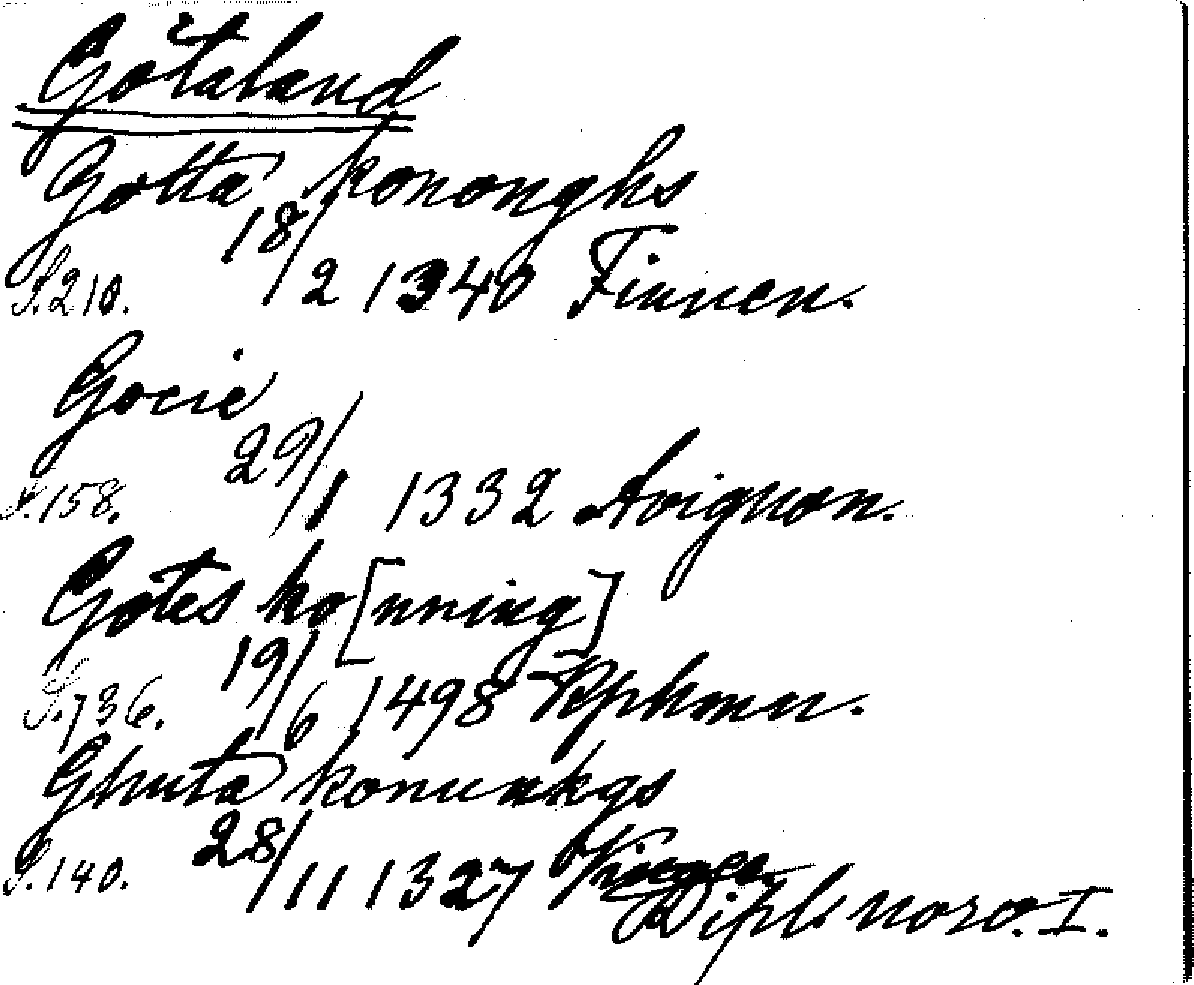 Götaland
Gotta kononghs
S.210. 18/2 1340 Finnen.
Gocie
S.158. 29/1 1332 Avignon.
Gotes ko[nning]
S.736. 19/6 1498 Kphmn.
Ghuta konunkgs
S.140. 28/11 1327
Dipl. norv. I.